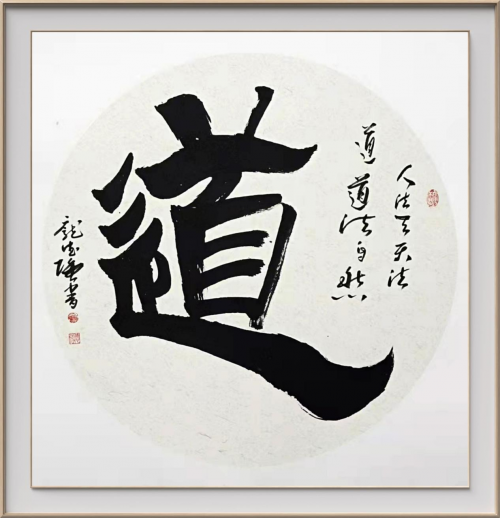 人法天天法
道道法自然
道
龍書